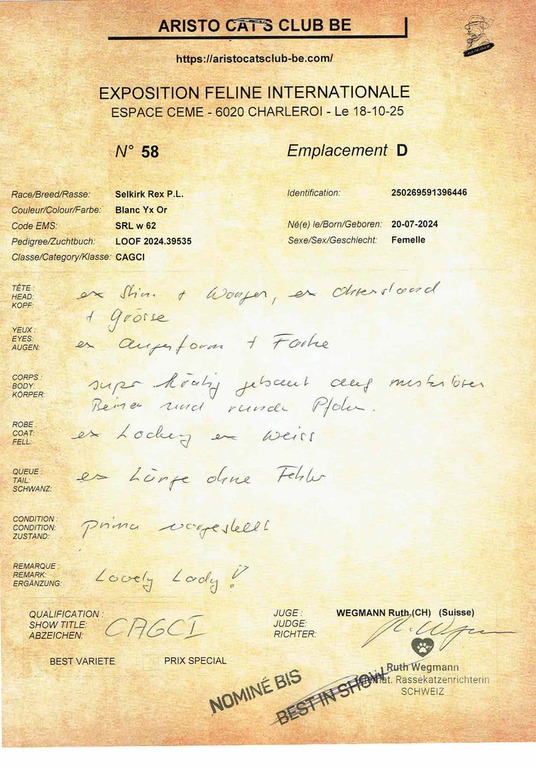 ARISTO CAT'S CLUB BE
https://aristocatsclub-be.com/
EXPOSITION FELINE INTERNATIONALE
ESPACE CEME - 6020 CHARLEROI - Le 18-10-25
N° 58 Emplacement D
Race/Breed/Rasse: Selkirk Rex P.L. Identification: 250269591396446
Couleur/Colour/Farbe: Blanc Yx Or
Code EMS: SRL w 62 Né(e) le/Born/Geboren: 20-07-2024
Pedigree/Zuchtbuch: LOOF 2024.39535 Sexe/Sex/Geschlecht: Femelle
Classe/Category/Klasse: CAGCI
TÊTE :
HEAD: ex Stirn + Wangen, ex Ohrenstand
KOPF: + Grösse
YEUX :
EYES: ex Augenform + Farbe
AUGEN:
CORPS :
BODY: super kräftig gebaut auf
KÖRPER: Beinen und runde Pfoten.
ROBE :
COAT: ex Locken ex weiss
FELL:
QUEUE :
TAIL: ex Länge ohne Fehler
SCHWANZ:
CONDITION :
CONDITION: prima vorgestellt
ZUSTAND:
REMARQUE :
REMARK: Lovely Lady!
ERGÄNZUNG:
QUALIFICATION : JUGE : WEGMANN Ruth (CH) (Suisse)
SHOW TITLE: CAGCI JUDGE:
ABZEICHEN: RICHTER: R. Wegmann
BEST VARIETE PRIX SPECIAL
Ruth Wegmann
Internat. Rassekatzenrichterin
SCHWEIZ
NOMINÉ BIS
BEST IN SHOW